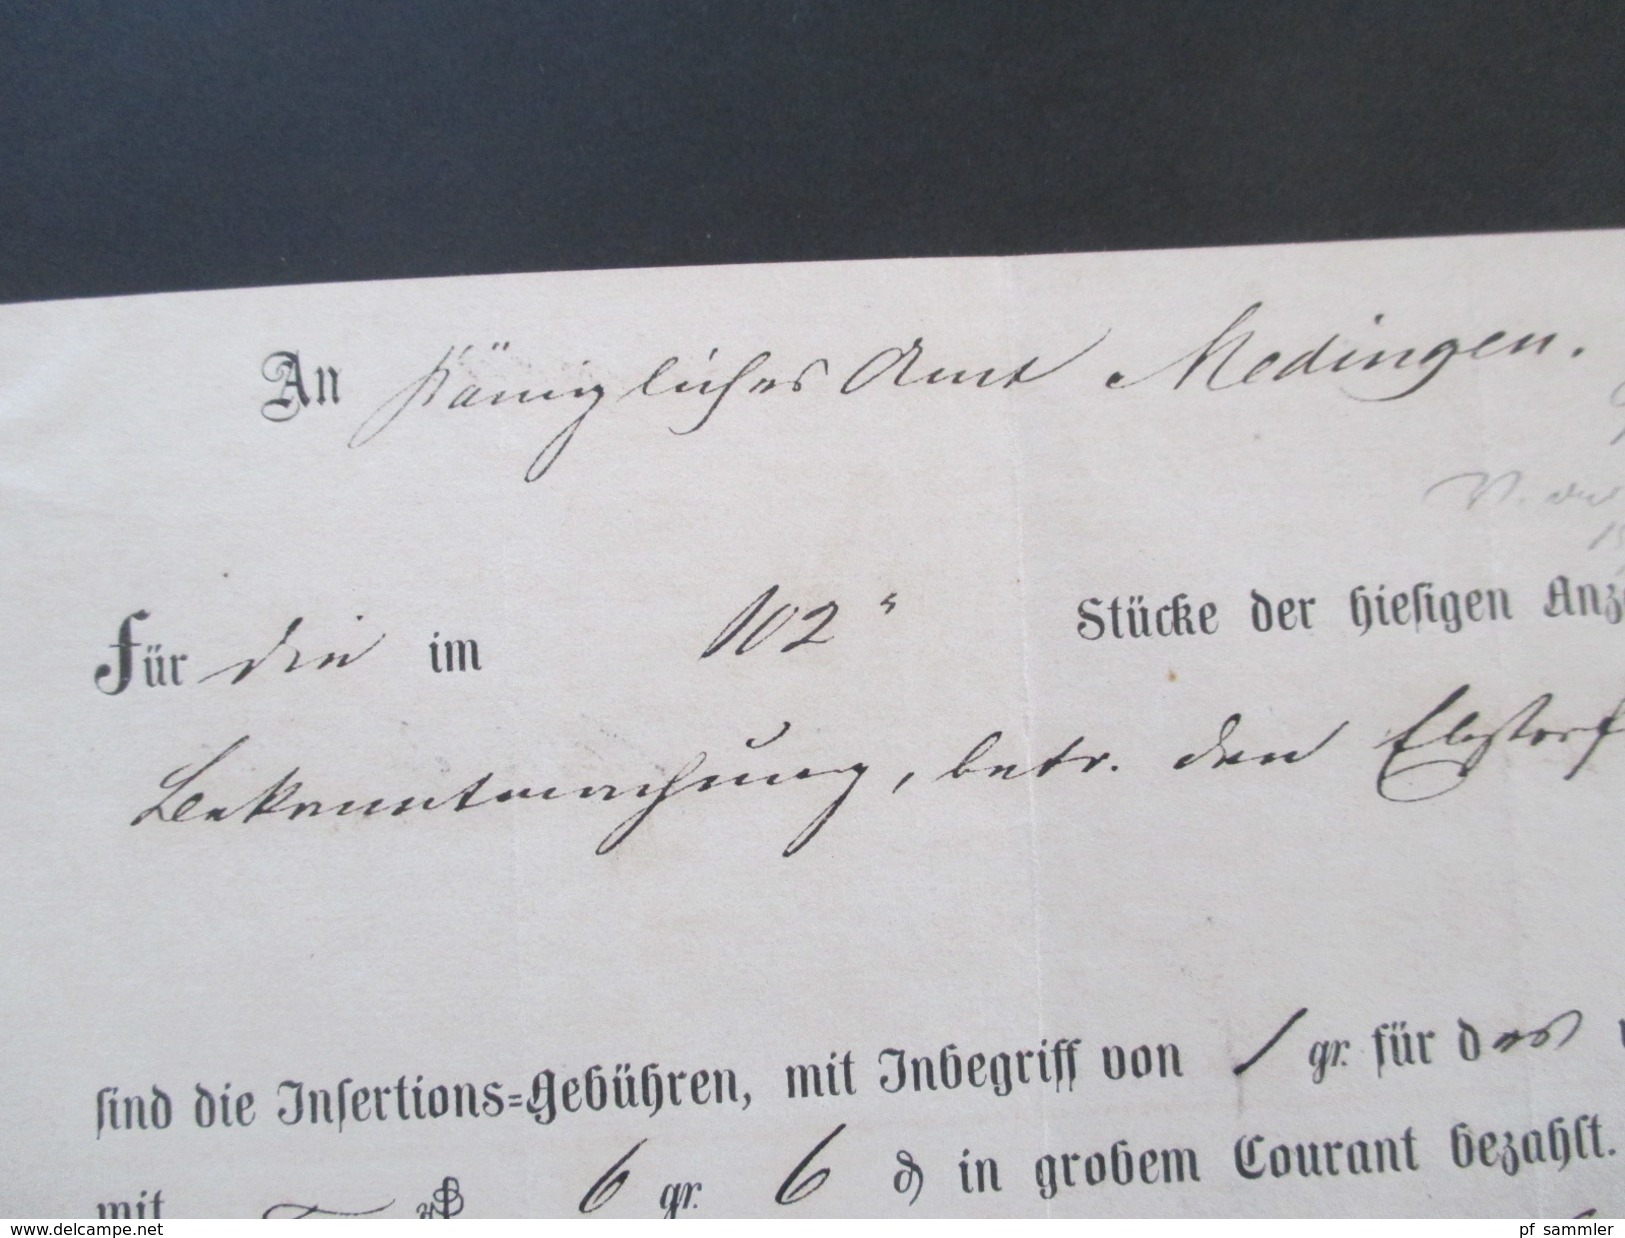 An Königliches Amt Medingen.
V.
Für die im 102 Stücke der hiesigen Anz
Bekanntmachung, betr. den Ebstorf
sind die Insertions=Gebühren, mit Inbegriff von 1 gr. für das
mit 6 gr. 6 ₰ in grobem Courant bezahlt.
www.delcampe.net
pf_sammler